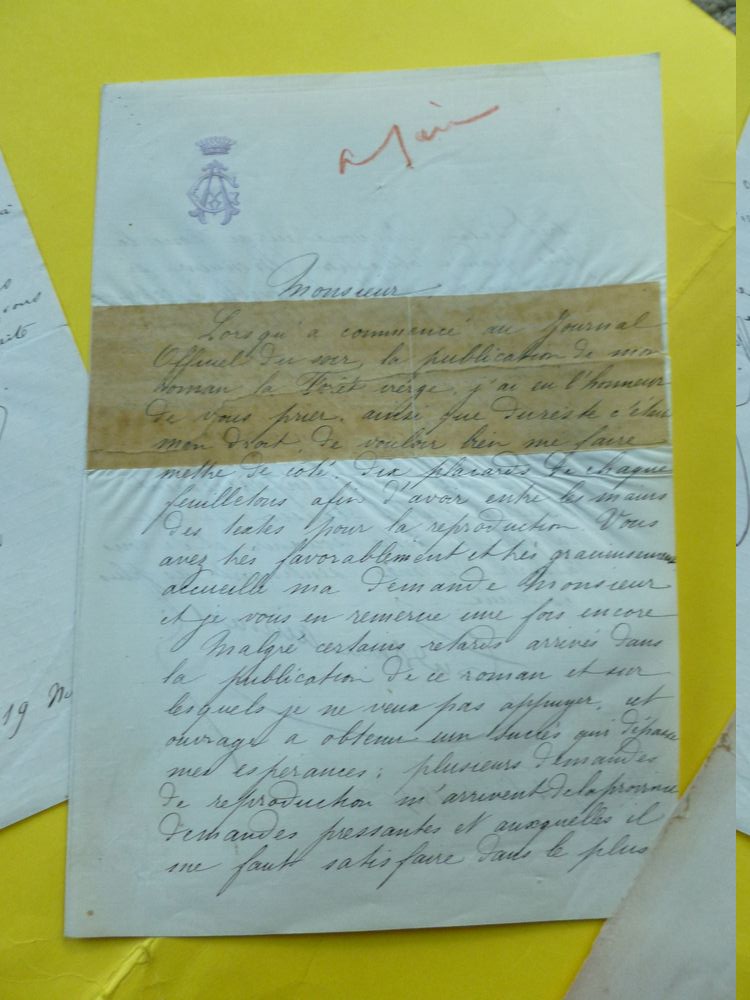 Monsieur
Lorsqu'a commencé au Journal
Officiel du soir, la publication de mon
roman la Forêt vierge, j'ai eu l'honneur
de vous prier, ainsi que du reste c'était
mon droit de vouloir bien me faire
mettre de côté, dix placards de chaque
feuilletons afin d'avoir entre les mains
des textes pour la reproduction. Vous
avez très favorablement et très gracieusement
accueilli ma demande Monsieur
et je vous en remercie une fois encore
Malgré certains retards arrivés dans
la publication de ce roman et sur
lesquels je ne veux pas appuyer, cet
ouvrage a obtenu un succès qui dépasse
mes esperances; plusieurs demandes
de reproduction m'arrivent de la province
demandes pressantes et auxquelles il
me faut satisfaire dans le plus
vous
19